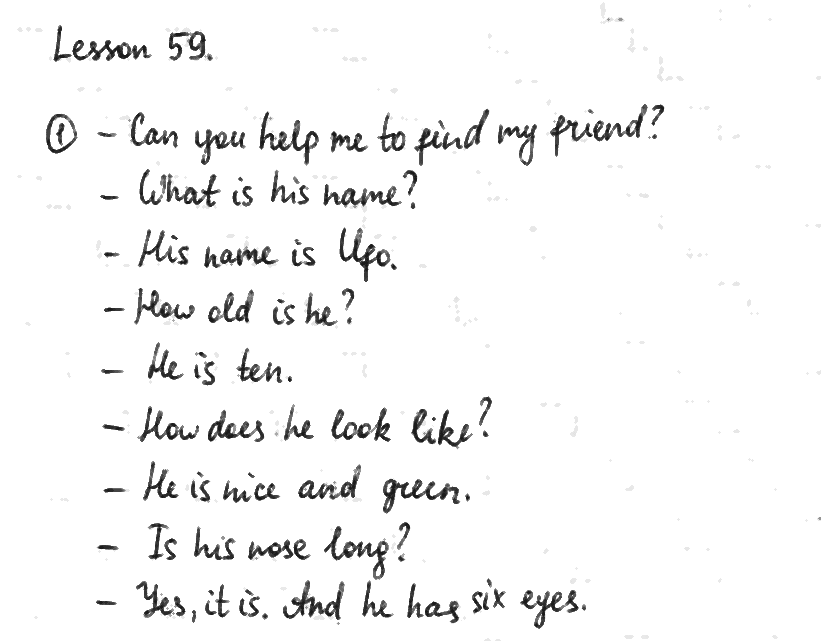 Lesson 59.
① – Can you help me to find my friend?
– What is his name?
– His name is Ufo.
– How old is he?
– He is ten.
– How does he look like?
– He is nice and green.
– Is his nose long?
– Yes, it is. And he has six eyes.